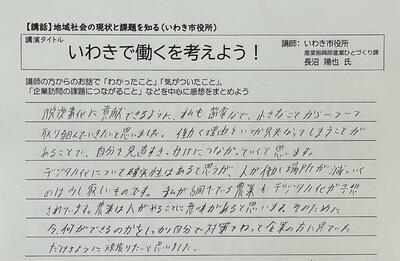 【講話】地域社会の現状と課題を知る（いわき市役所）
講演タイトル
いわきで働くを考えよう！
講師：いわき市役所
産業振興部産業ひとづくり課
長沼 陽也 氏
講師の方からのお話で「わかったこと」「気がついたこと」、
「企業訪問の課題につながること」などを中心に感想をまとめよう
脱炭素化に貢献できるように、私も節電など、小さなことから一つ一つ
取り組んでいきたいと思いました。働く理由というか見失ってしまうことが
あることで、自分を見直すきっかけにつながっていくと思います。
デジタル化について確実性はあると思うが、人が働く場所が減っていく
のは少し寂しいものです。私が調べている農業もデジタル化が予想
されています。農業は人がやることに意味があると思います。そのために
今、何ができるのかをしっかり自分で対策をねって企業の方に見ていた
だけるように頑張りたいと思いました。